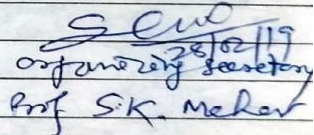 28/02/19
Organizing Secretary
Prof S.K. Meher